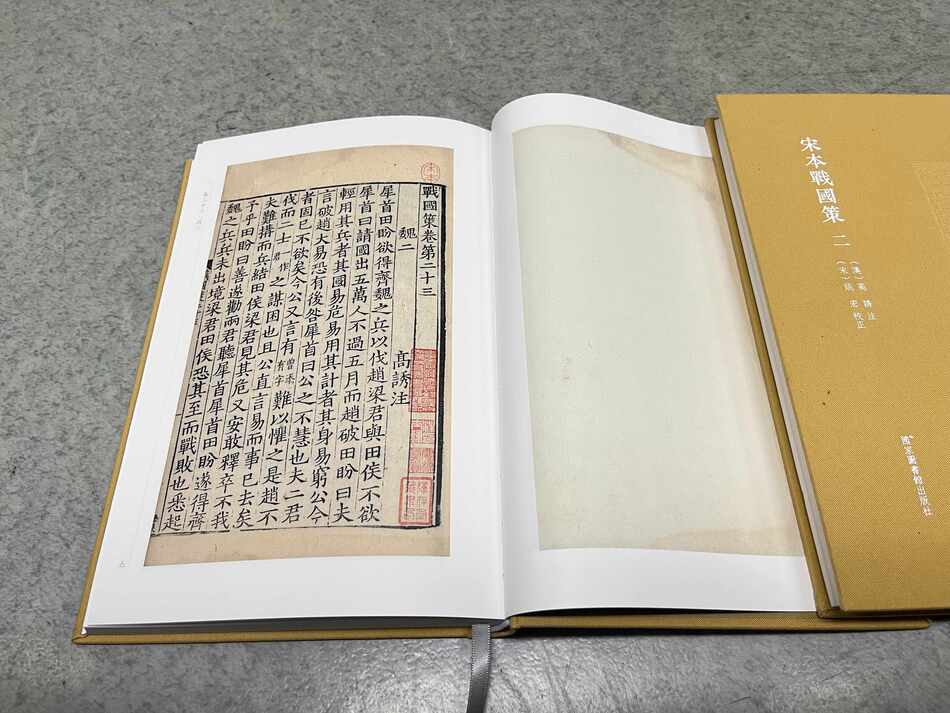 宋本
戰國策卷第二十三
魏二 高誘注
犀首田盼欲得齊魏之兵以伐趙梁君與田侯不欲
犀首曰請國出五萬人不過五月而趙破田盼曰夫
輕用其兵者其國易危易用其計者其身易窮公今
言破趙大易恐有後咎犀首曰公之不慧也夫二君
者固已不欲矣今公又言有曾添有字難以懼之是趙不
伐而二士作君之謀困也且公直言易而事已去矣
夫難搆而兵結田侯梁君見其危又安敢釋卒不我
予乎田盼曰善遂勸兩君聽犀首犀首田盼遂得齊
魏之兵兵未出境梁君田侯恐其至而戰敗也悉起
宋本戰國策 二
（漢）高誘 注
（宋）姚宏 校正
國家圖書館出版社